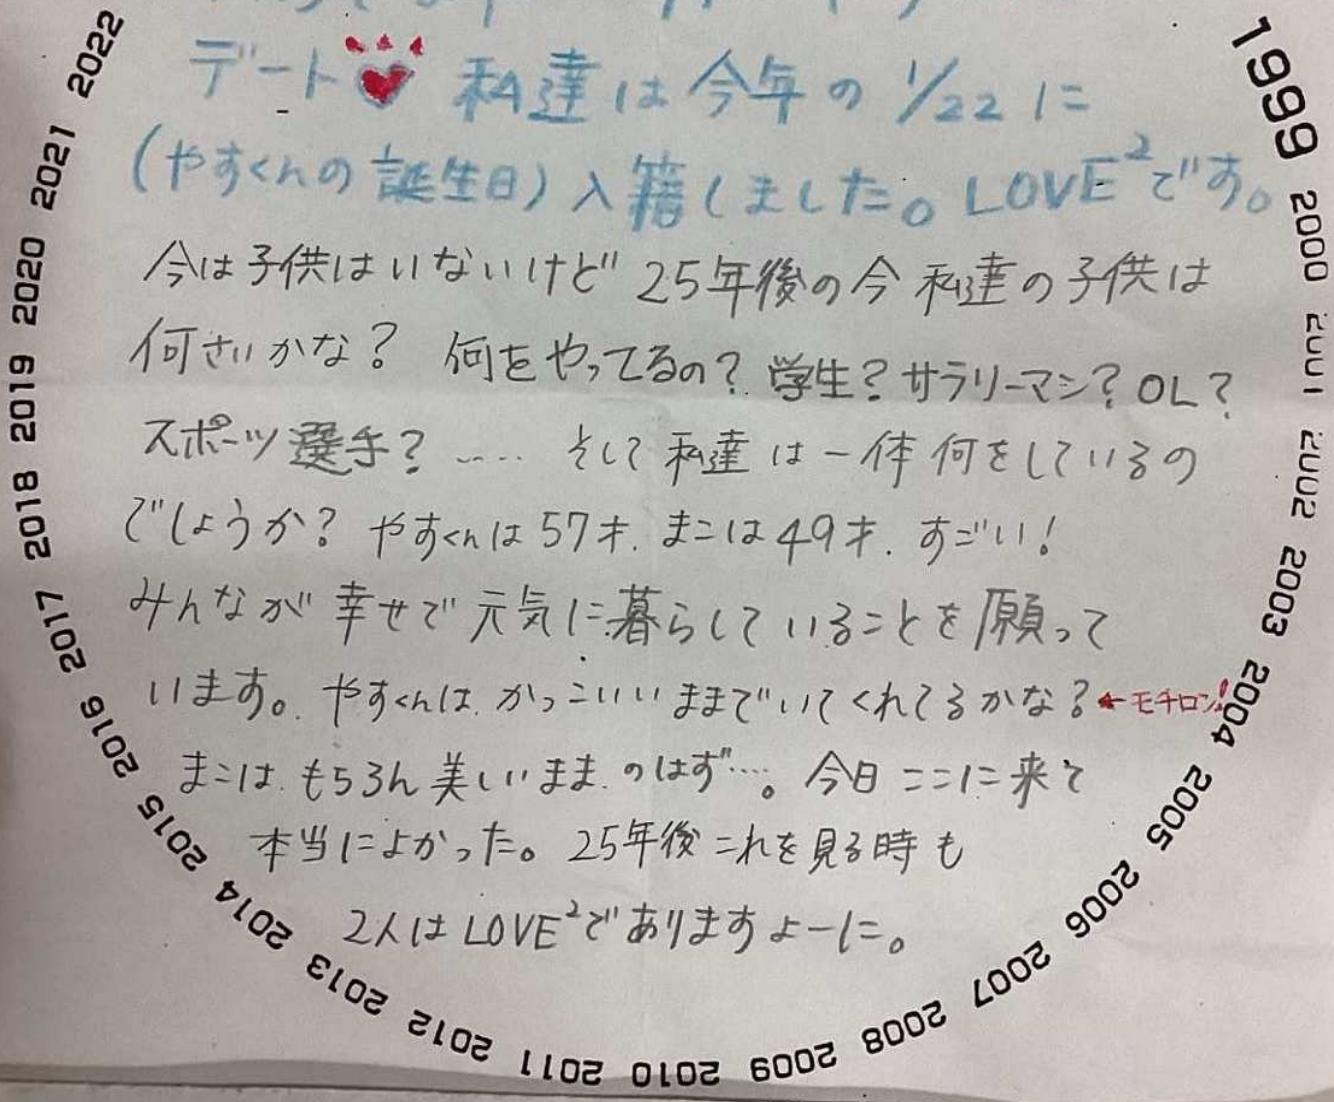 デート♥ 私達は今年の1/22に
(やすくんの誕生日)入籍しました。LOVE²です。
今は子供はいないけど 25年後の今 私達の子供は
何さいかな? 何をやってるの? 学生? サラリーマン? OL?
スポーツ選手? ‥‥ そして 私達は一体何をしているの
でしょうか? やすくんは57才. まこは49才. すごい!
みんなが幸せで元気に暮らしていることを願って
います。やすくんは かっこいいままでいてくれてるかな? ←モチロン!
まこは もちろん美しいまま のはず‥‥。今日ここに来て
本当によかった。25年後これを見る時も
2人はLOVE²でありますよーに。
1999
2000
2001
2002
2003
2004
2005
2006
2007
2008
2009
2010
2011
2012
2013
2014
2015
2016
2017
2018
2019
2020
2021
2022